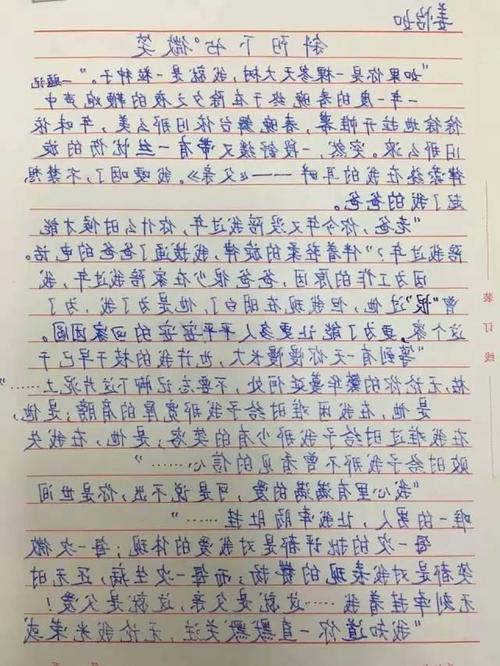 姜怡如
斜阳下的微笑
"如果你是一棵参天大树,我就是一粒种子。"——题记
一年一度的春晚终于在除夕之夜的鞭炮声中
徐徐地拉开帷幕,春晚舞台依旧那么美,年味依
旧那么浓。突然,一段舒缓又带有一丝忧伤的旋
律萦绕在我的耳畔——《父亲》。我哽咽了,不禁想
起了我的爸爸。
"老爸,你今年又没陪我过年,你什么时候才能
陪我过年?"伴着轻柔的旋律,我拨通了爸爸的电话。
因为工作的原因,爸爸很少在家陪我过年,我
曾"恨"过他,但我现在明白了,他是为了我,为了
这个家,更为了能让更多人平平安安的回家团圆。
"等到有一天你慢慢长大,也许我的枝干早已干
枯无论你的繁华蔓延何处,不要忘记脚下这片泥土……"
是他,在我困难时给予我那宽厚的肩膀;是他,
在我难过时给予我那少有的笑容;是,他,在我失
败时给予我那不曾看见的信心……
"我心里有满满的爱,可是说不出,你是世间
唯一的男人,让我牵肠肚挂……"
每一次的批评都是对我爱的体现;每一次微
笑都是对我表现的赞扬;而每一次生病,还无时
无刻牵挂着我……这就是父亲,这就是父爱!
"我知道你一直默默关注,无论我光荣或
装订线